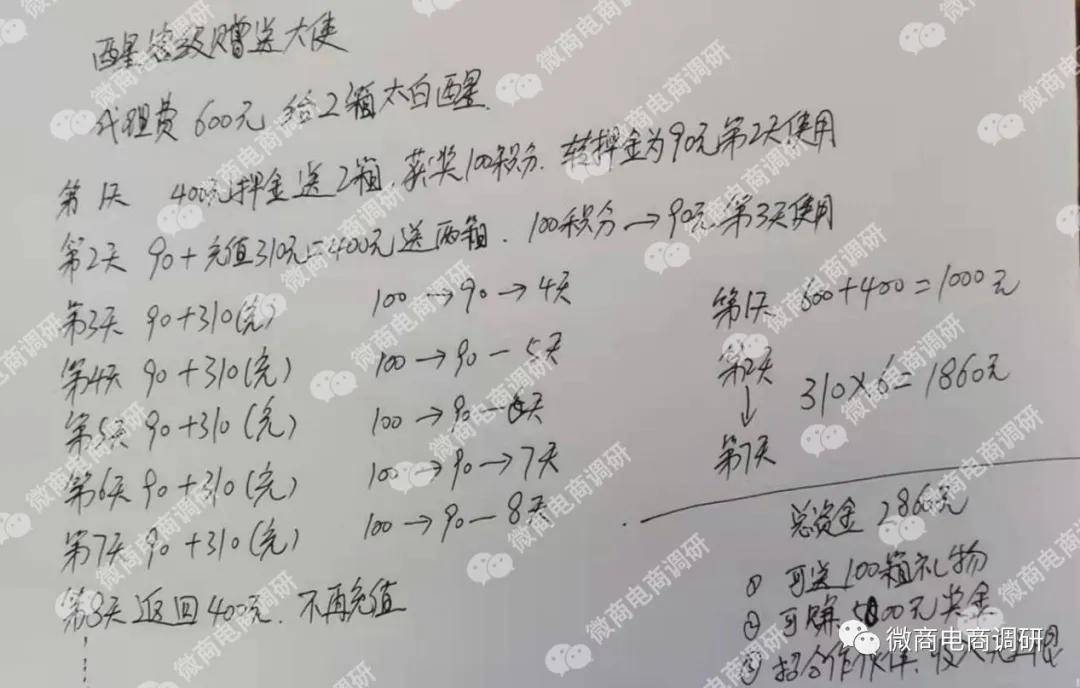 酉星客级赠送大使
代理费 600元 给2箱太白酉星.
第1天 400元押金送2箱,获奖100积分.转押金为90元第2天使用
第2天 90+充值310元=400元送两箱.100积分→90元.第3天使用
第3天 90+310(充) 100→90→4天
第4天 90+310(充) 100→90—5天
第5天 90+310(充) 100→90—6天
第6天 90+310(充) 100→90→7天
第7天 90+310(充) 100→90—8天
第8天返回400元.不再充值
第1天 600+400=1000元
第2天
↓ 310×6=1860元
第7天
总资金 2860元
① 可送100箱礼物
② 可赚5100元奖金
③ 招合作伙伴.收入无上限
微商电商调研